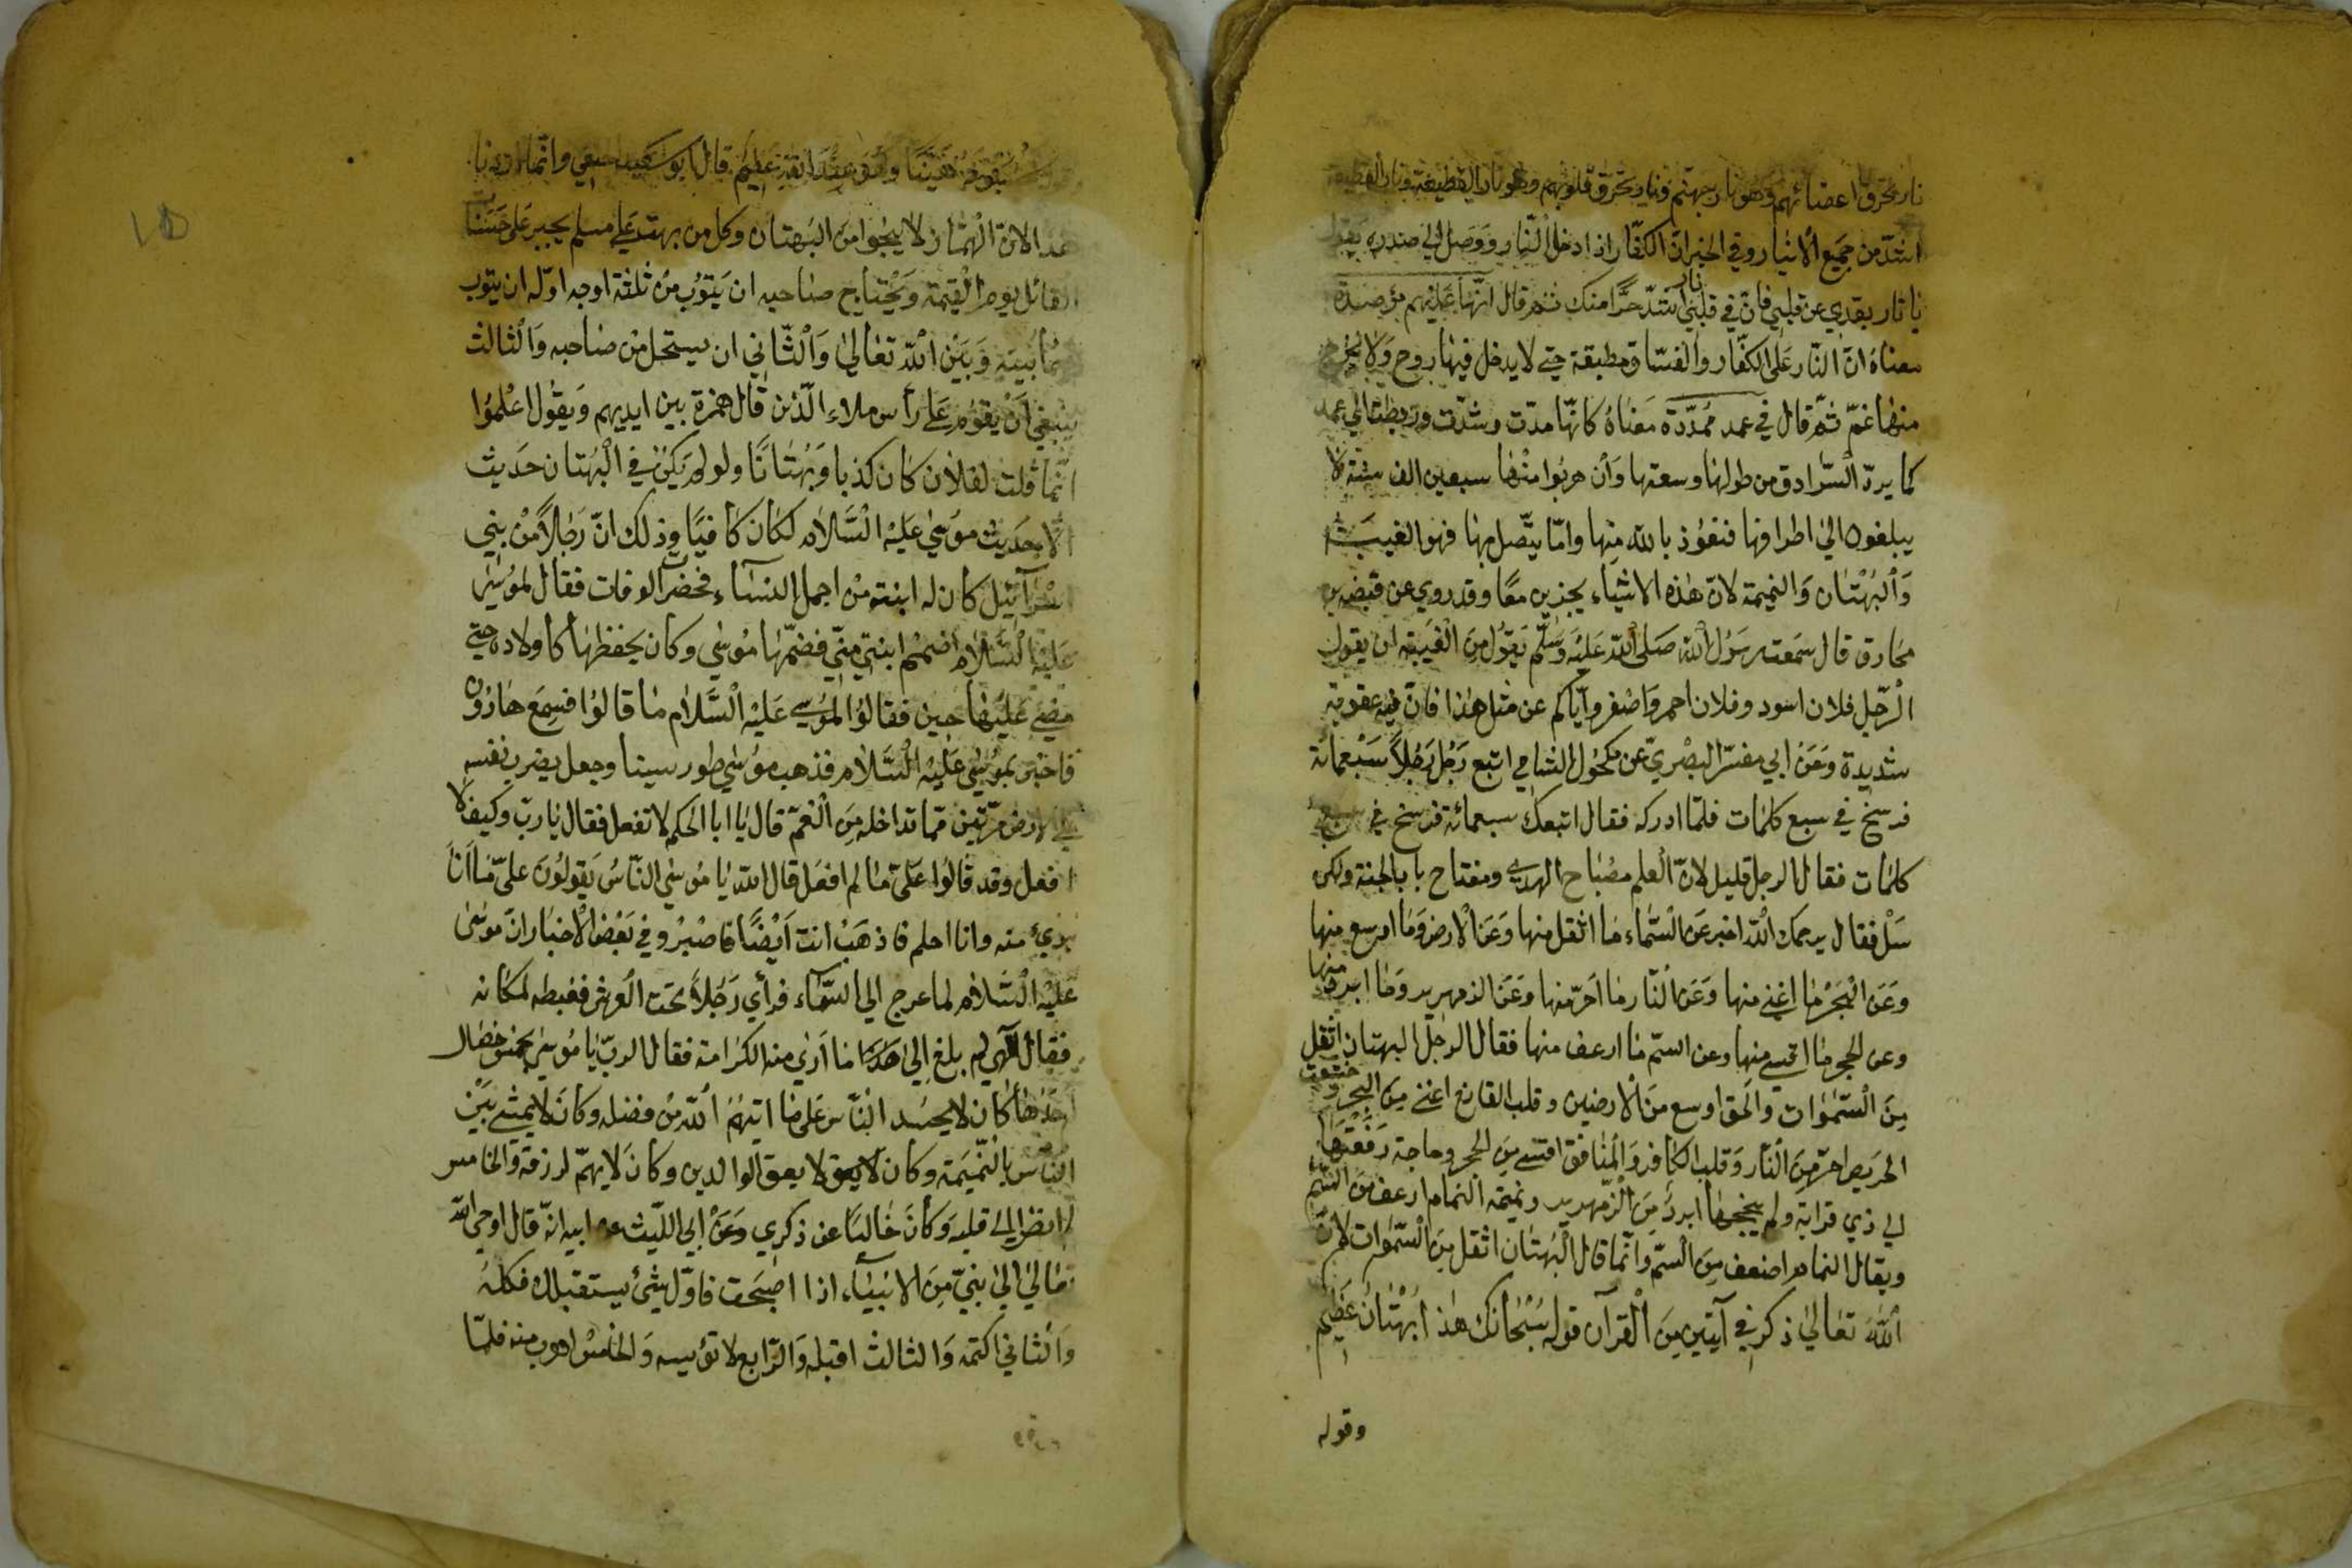 نار تحرق اعضائهم وهو نار جهنم ونار تحرق قلوبهم وهو نار القطيعة ونار القطيعة
اشدّ من جميع الانيار وفي الخبر انّ الكفّار اذا ادخل النّار ووصل الي صدره يقول
يا نار بعّدي عن قلبي فانّ في قلبي نار اشدّ حرًّا منك ثم قال انّها عليهم مؤصدة
معناهُ انّ النّار على الكفّار والفسّاق مطبقة حتي لا يدخل فيها روح ولا يخرج
منها غمّ ثمّ قال في عمد ممدّدة معناهُ كانّها مدّت وشدّت وربطت الي عمد
كما يردّ السّرادق من طولها وسعتها وان هربوا منها سبعين الف سنة لا
يبلغون الي اطرافها فنعوذ بالله منها وامّا يتّصل بها فهو الغيبة
والبهتان والنميمة لانّ هذه الاشياء يجذبن معًا وقد روي عن قبضه بن
مخارق قال سمعت رسول الله صلّى الله عليه وسلّم يقول من الغيبة ان يقول
الرّجل فلان اسود وفلان احمر واصفر وايّاكم عن مثل هذا فانّ فيه عقوبة
شديدة وعن ابي مفسّر البصريّ عن مكحول الشامي اتبع رجل رجلاً سبعمائة
فرسخ في سبع كلمات فلمّا ادركه فقال اتبعك سبعمائة فرسخ في سبع
كلمات فقال الرجل قليل لانّ العلم مصباح الهدي ومفتاح باب الجنة ولكن
سل فقال يرحمك الله اخبر عن السّماء ما اثقل منها وعن الارض وما اوسع منها
وعن البحر ما اغني منها وعن النّار ما احرّ منها وعن الزمهرير وما ابرد منها
وعن الحجر ما اقسي منها وعن السّم ما ارعف منها فقال الرجل البهتان اثقل
من السّموات والحق اوسع من الارضين وقلب القانع اغني من البحر و
الحريص احرّ من النّار وقلب الكافر والمنافق اقسي من الحجر وحاجة رفعتها
الي ذي قرابة ولم ينجحها ابرد من الزّمهرير ونميمة النمام ارعف من السّم
ويقال النمام اضعف من السّم وانّما قال البهتان اثقل من السّموات لانّ
الله تعالي ذكر في آيتين من القرآن قوله سبحانك هذا بهتان عظيم
وقوله
هيّنًا وهو عند الله عظيم قال ابو وانّما
الانّ الهمّاز لا ينجوا من البهتان وكل من بهت علي مسلم يجبر على حسنا
القائل يوم القيمة ويحتاج صاحبه ان يتوب من ثلثة اوجه اوّله ان يتوب
بينه وبين الله تعالى والثّاني ان يستحل من صاحبه والثالث
ينبغي ان يقوم علي رأس ملاء الّذين قال همزة بين ايديهم ويقول اعلموا
انّما قلت لفلان كان كذبا وبهتانًا ولو لم يكن في البهتان حديث
الا حديث موسي عليه السّلام لكان كافيًا وذلك انّ رجلاً من بني
اسرآئيل كان له ابنة من اجمل النسآء فحضر الوفات فقال لموسي
عليه السّلام اضمم ابنتي منّي فضمّها موسي وكان يحفظها كاولاده حتي
مضي عليها حين فقالوا لموسي عليه السّلام ما قالوا فسمع هارون
فاخبر بموسي عليه السّلام فذهب موسي طور سينا وجعل يضرب نفسه
علي الارض مرّتين ممّا تداخله من الغمّ قال يا ابا الحكم لا تفعل فقال يا ربّ وكيف لا
افعل وقد قالوا علىّ ما لم افعل قال الله يا موسي النّاس يقولون علىّ ما انا
بريء منه وانا احلم فاذهب انت ايضًا فاصبر وفي بعض الاخبار انّ موسي
عليه السّلام لما عرج الي السّماء فرأي رجلاً تحت العرش فغبطه لمكانه
فقال الٓهي لم بلغ الي هذا ما اري منه الكرامة فقال الربّ يا موسي بخمس خصال
احدها كان لا يحسد النّاس على ما اتيهم الله من فضله وكان لا يمشي بين
النّاس بالنّميمة وكان لا يعق لا يعق الوالدين وكان لا يهمّ لرزقه والخامس
انظر الي قلبه وكان خاليًا عن ذكري وعن ابي اللّيث عن ابيه انّه قال اوحي الله
تعالي الي نبيّ من الانبيآء اذا اصبحت فاوّل شئ يستقبلك فكله
والثاني اكتمه والثالث اقبله والرّابع لا تؤيسه والخامس اهرب منه فلمّا